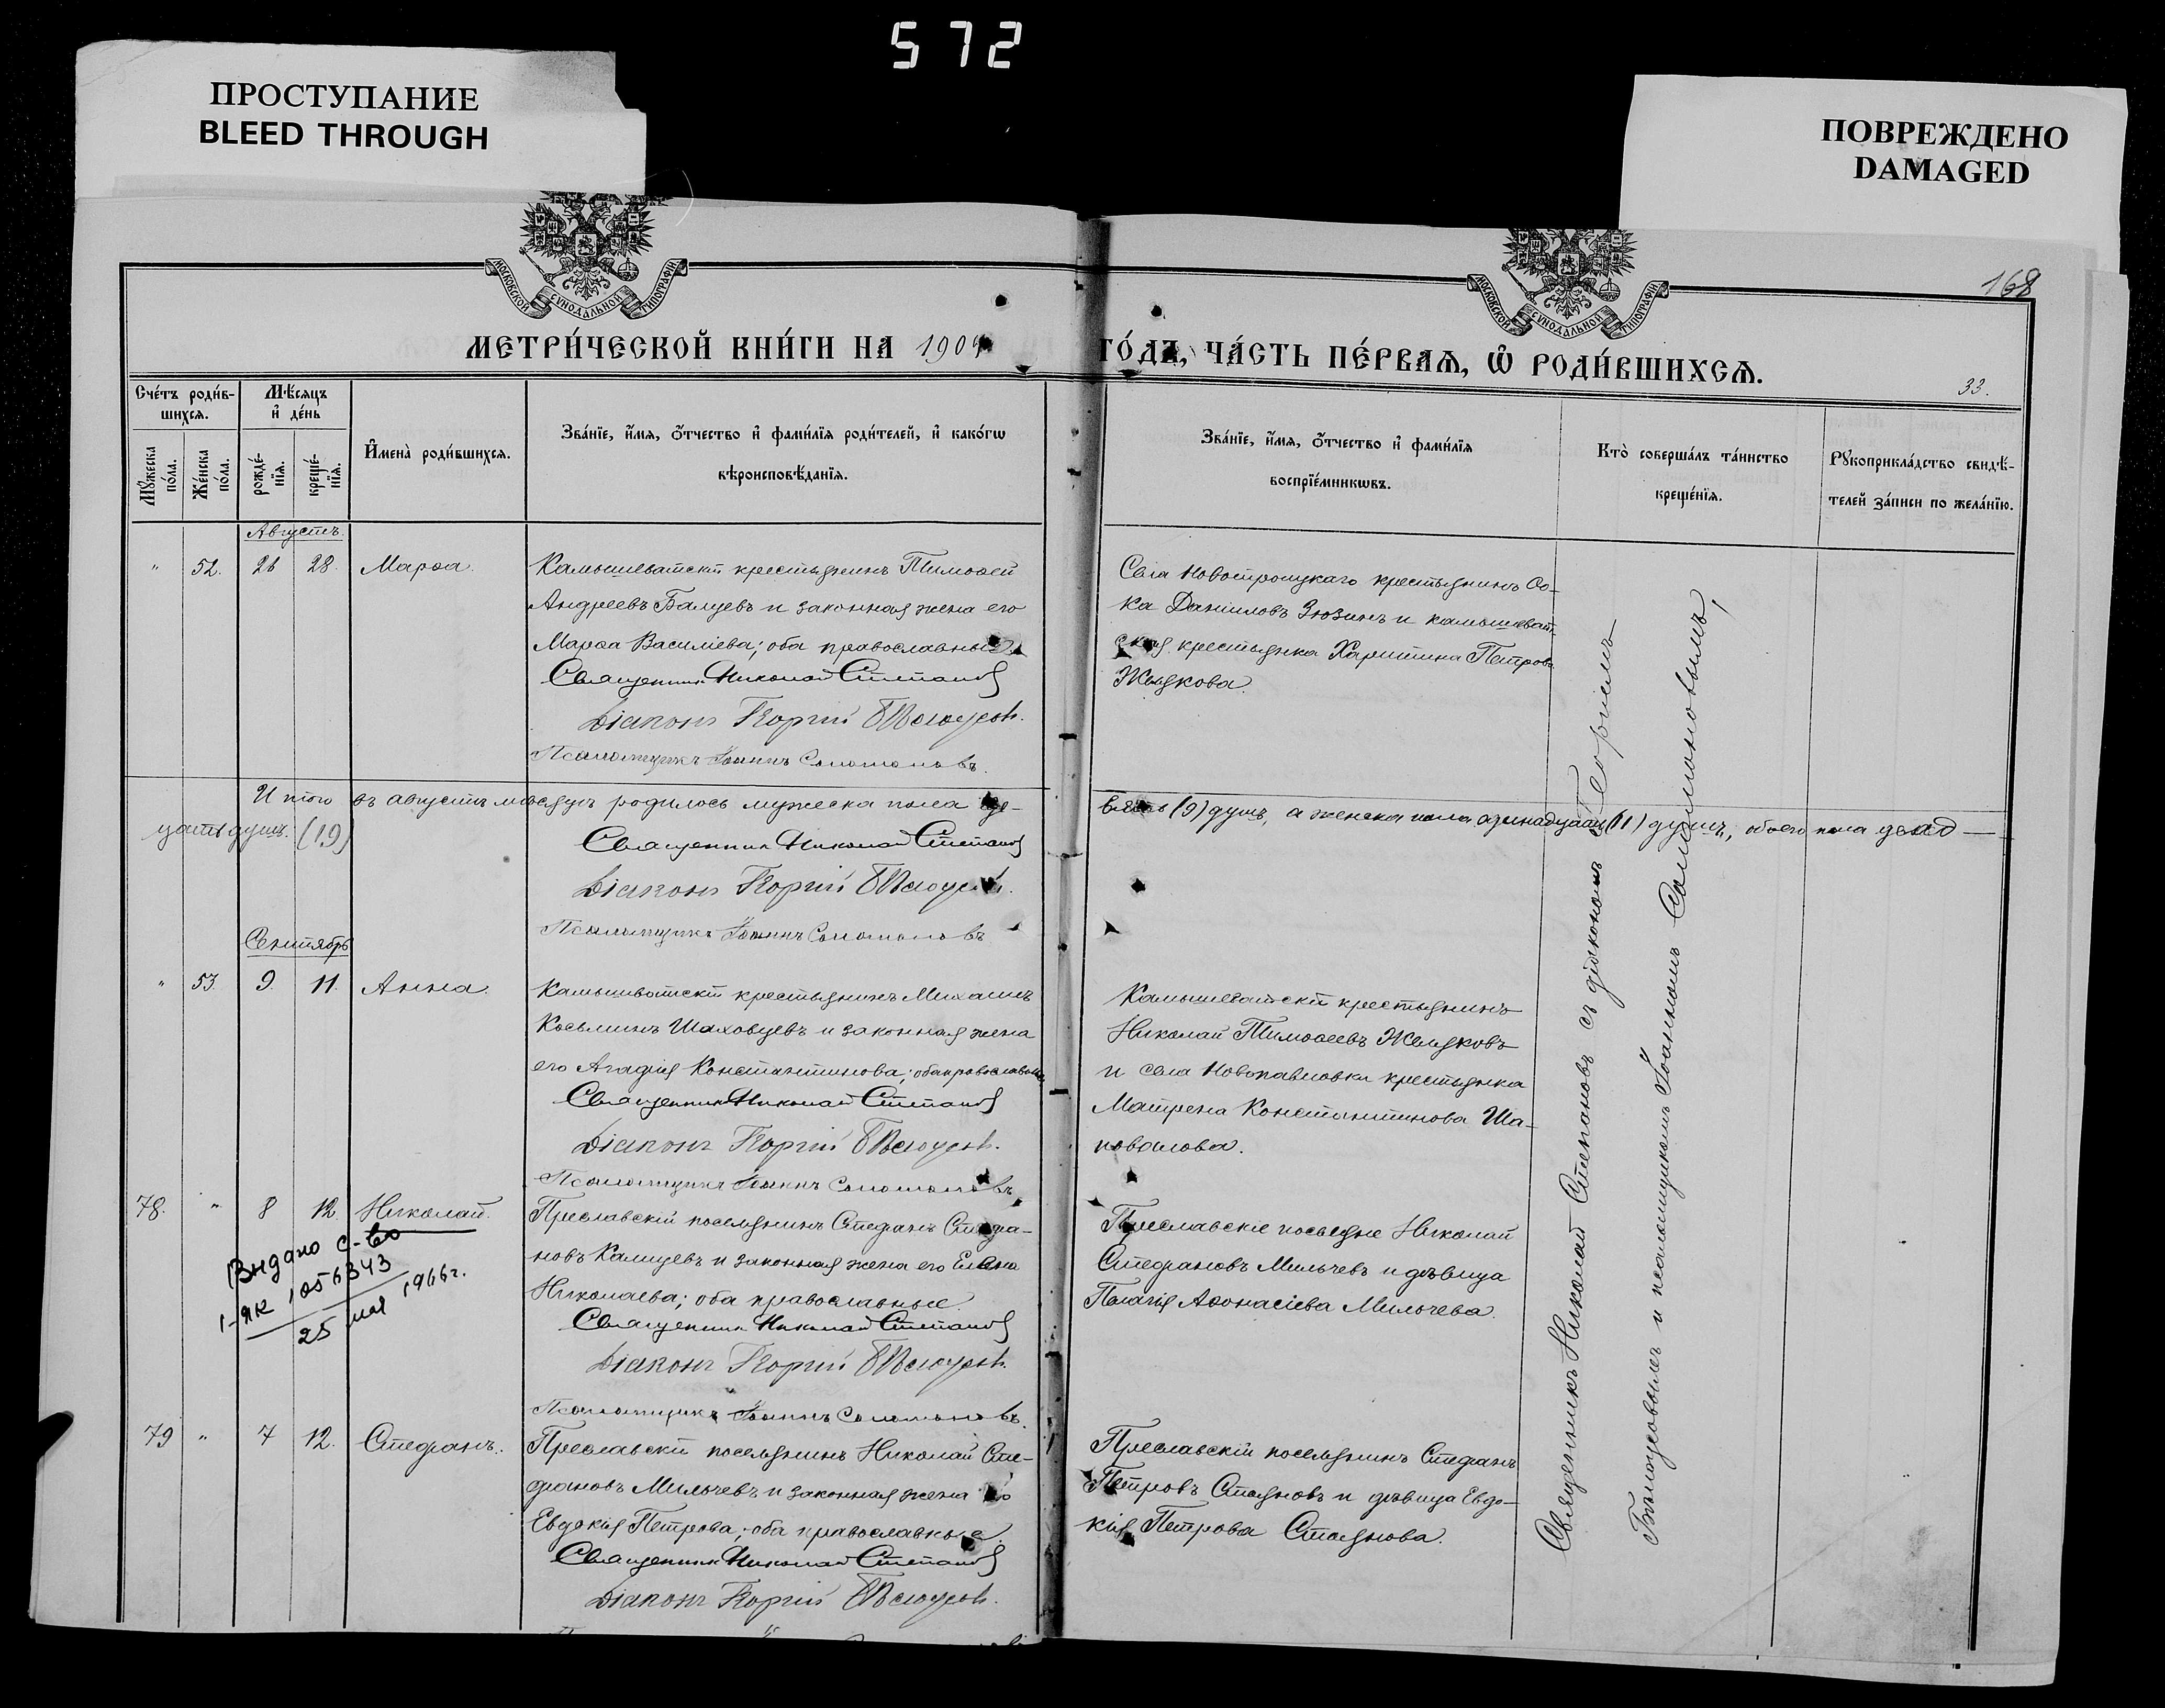 572
ПРОСТУПАНИЕ
BLEED THROUGH
ПОВРЕЖДЕНО
DAMAGED
МОСКОВСКОЙ СѴНОДАЛЬНОЙ ТИПОГРАФІИ
МОСКОВСКОЙ СѴНОДАЛЬНОЙ ТИПОГРАФІИ
168
МЕТРИ́ЧЕСКОЙ КНИ́ГИ НА 190
ГО́ДЪ, ЧА́СТЬ ПЕ́РВАЯ, Ѡ҆ РОДИ́ВШИХСЯ.
33.
Сче́тъ роди́в-
шихся.
Мѣ́сяцъ
и҆ де́нь
Мꙋ́жеска по́ла.
Же́нска по́ла.
рожде́-
нїя.
креще́-
нїя.
И҆мена̀ роди́вшихся.
Зва́нїе, и҆́мя, ѻ҆́тчество и҆ фами́лїя роди́телей, и҆ како́гѡ
вѣроисповѣ́данїя.
Зва́нїе, и҆́мя, ѻ҆́тчество и҆ фами́лїя
воспрїе́мникѡвъ.
Кто̀ соверша́лъ та́инство
креще́нїя.
Рꙋкоприкла́дство свидѣ́-
телей за́писи по жела́нїю.
Августъ.
" 52. 26 28. Марѳа.
Камышеватскій крестьянинъ Тимоѳей
Андреевъ Балцевъ и законная жена его
Марѳа Василіева; оба православные
Священникъ Николай Степановъ
Діаконъ Георгій Бѣлоусовъ.
Псаломщикъ Іоаннъ Соломоновъ.
Села Новотроицкаго крестьянинъ Ѳо-
ка Даніиловъ Зюзинъ и камышеват-
ская крестьянка Харитина Петрова
Жидкова.
Итого въ августѣ мѣсяцѣ родилось мужеска пола
(9) душъ, а женска пола одинадцать (11) душъ, обоего пола двад-
цать душъ. (19)
Священникъ Николай Степановъ
Діаконъ Георгій Бѣлоусовъ.
Псаломщикъ Іоаннъ Соломоновъ
Сентябрь
" 53. 9. 11. Анна.
Камышеватскій крестьянинъ Михаилъ
Косьминъ Шаховцевъ и законная жена
его Агафія Константинова; оба православные
Священникъ Николай Степановъ
Діаконъ Георгій Бѣлоусовъ.
Псаломщикъ Іоаннъ Соломоновъ
Камышеватскій крестьянинъ
Николай Тимоѳеевъ Жидковъ
и села Новопавловки крестьянка
Матрена Константинова Ша-
повалова.
78. " 8 12. Николай.
Видано с-во
1-ЯК 056343
25 мая 1966г.
Преславскій поселянинъ Стефанъ Стефа-
новъ Калчевъ и законная жена его Елена
Николаева; оба православные.
Священникъ Николай Степановъ
Діаконъ Георгій Бѣлоусовъ.
Псаломщикъ Іоаннъ Соломоновъ.
Преславскіе поселяне Николай
Стефановъ Мильчевъ и дѣвица
Пелагія Аѳонасіева Мильчева.
79 " 7 12. Стефанъ.
Преславскій поселянинъ Николай Сте-
фановъ Мильчевъ и законная жена его
Евдокія Петрова; оба православные.
Священникъ Николай Степановъ
Діаконъ Георгій Бѣлоусовъ.
Преславскій поселянинъ Стефанъ
Петровъ Стояновъ и дѣвица Евдо-
кія Петрова Стоянова.
Священникъ Николай Степановъ съ діакономъ Георгіемъ
Бѣлоусовымъ и псаломщикомъ Іоанномъ Соломоновымъ,